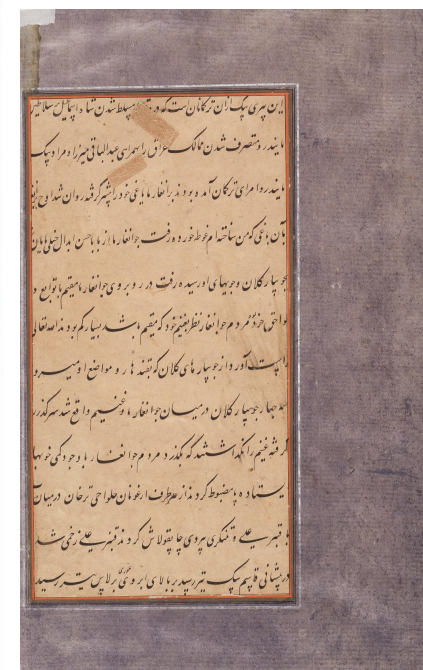 این پیری بیک ازان ترکمانان است که در مسلط شدن شاه اسماعیل سلاطین
بایندر و متصرف شدن ممالک عراق را همراهی عبدالباقی میرزا و مراد بیک
بایندر و امرای ترکمان آمده بودند برانغار ما یاغی خود را پیشتر گرفته روان شد
بآن باغی که من ساخته ام غوطه خورده رفت جوانغار ما از بابا حسن ابدال خیلی پایان
بجویبار کلان و جویهای او رسیده رفت در روبروی جوانغار ما مقیم با توابع و
لواحق خود مردم جوانغار نظر بغنیم خود که مقیم باشد بسیار کم بودند الله تعالی
راست آورد از جویبارهای کلان که قندهار و مواضع او میرود
سه چهار جویبار کلان درمیان جوانغار ما و غنیم واقع شد سر گذر
گرفته غنیم را نگذاشتند که بگذرد مردم جوانغار با وجود کمی خوبها
ایستاده پا مضبوط کردند از طرف ارغونان حلواچی ترخان درمیان
با قنبر علی و تنگری بیردی چاپقولاش کردند قنبر علی زخمی شد
در پیشانی قاسم بیک تیر رسید بر بالای ابروی غوری برلاس تیر رسید